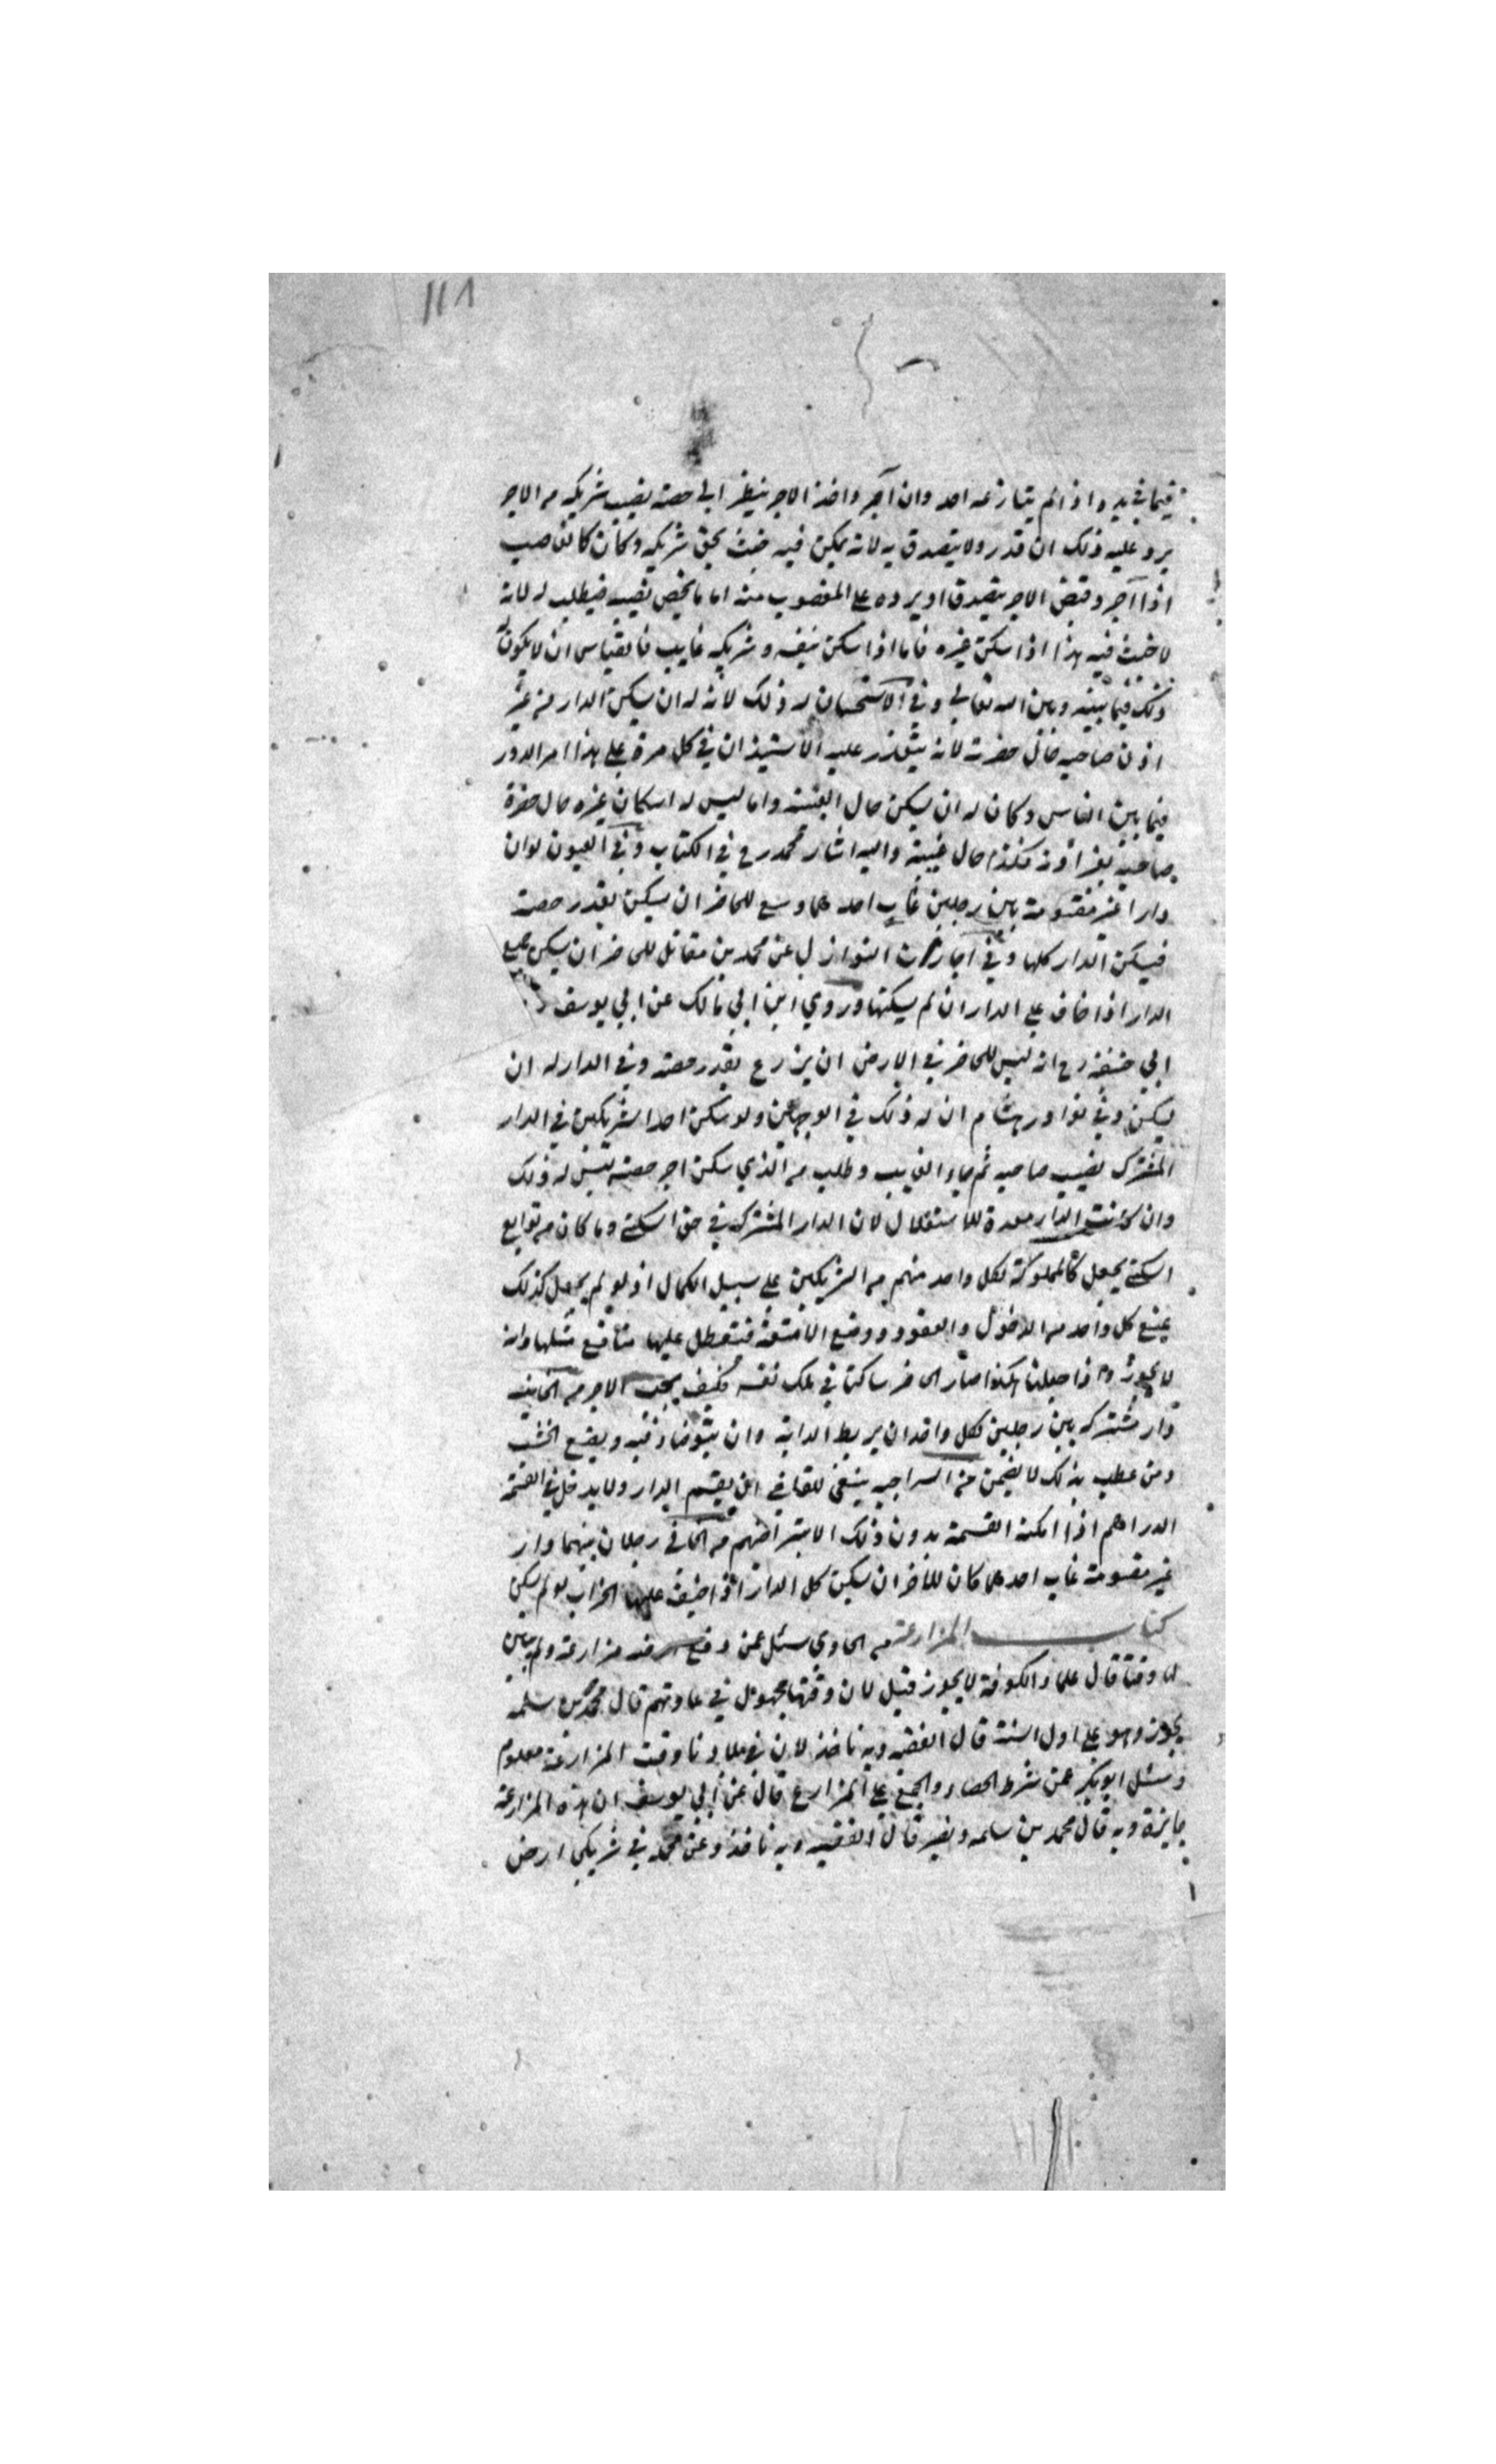 ١١٨
فيما في يده اذا لم ينازعه احد وان آجر واخذ الاجر ينظر الى حصة نصيب شريكه من الاجر
يرد عليه ذلك ان قدر ولا يتصدق به لانه يمكن فيه خبث بحق شريكه وكان كالغاصب
اذا آجر وقبض الاجر يتصدق او يرده على المغصوب منه اما ما يخص نصيبه فيطلب له لانه
لا خبث فيه هذا اذا اسكن غيره فاما اذا سكن بنفسه وشريكه غايب فالقياس ان لا يكون له
ذلك فيما بينه وبين الله تعالى وفي الاستحسان له ذلك لانه له ان يسكن الدار من غير
اذن صاحبه حال حضرته لانه يتعذر عليه الاستيذان في كل مرة على هذا امر الدور
فيما بين الناس وكان له ان يسكن حال الغيبة واما ليس له اسكان غيره حال حضرة
صاحبه بغير اذنه فكذا حال غيبته واليه اشار محمد رح في الكتاب وفي العيون لو ان
دارا غير مقسومة بين رجلين غاب احدهما وسع للحاضر ان يسكن بقدر حصته
فيسكن الدار كلها وفي اجازت النوازل عن محمد بن مقاتل للحاضر ان يسكن جميع
الدار اذا خاف على الدار ان لم يسكنها وروي ابن ابي مالك عن ابي يوسف
ابي حنيفة رح انه ليس للحاضر في الارض ان يزرع بقدر حصته وفي الدار له ان
يسكن وفي نوادر هشام ان له ذلك في الوجهين ولو سكن احد الشريكين في الدار
المشترك نصيب صاحبه ثم جاء الغايب وطلب من الذي سكن اجر حصته ليس له ذلك
وان كانت الدار معدة للاستغلال لان الدار المشتركة في حق السكنى وما كان من توابع
السكنى يجعل كالمملوكة لكل واحد منهم من الشريكين على سبيل الكمال اذ لو لم يجعل كذلك
يمنع كل واحد من الدخول والقعود ووضع الامتعة فيتعطل عليها منافع مثلها وانه
لا يجوز واذا جعلنا هكذا صار الحاضر ساكنا في ملك نفسه فكيف يجب الاجر من الخانيه
دار مشتركه بين رجلين فكل واحد ان يربط الدابه وان يتوضاء فيه ويضع الخشب
ومن عطب بذلك لا يضمن من السراجيه ينبغي للقاضي ان يقسم الدار ولا يدخل في القسمة
الدراهم اذا امكنه القسمة بدون ذلك الا بتراضيهم من الكافي رجلان بينهما دار
غير مقسومة غاب احدهما كان للآخر ان يسكن كل الدار اذا خيف عليها الخراب لو لم يسكن
كتاب المزارعة من الحاوي سئل عمن دفع ارضه مزارعة ولم يبين
لها وقتا قال علماء الكوفة لا يجوز قيل لان وقتها مجهول في عادتهم قال محمد بن سلمه
يجوز وهو على اول السنة قال الفقيه وبه ناخذ لان في بلادنا وقت المزارعة معلوم
وسئل ابو بكر عمن شرط الحصاد والجمع على المزارع قال عن ابي يوسف ان هذه المزارعة
جايزة وبه قال محمد بن سلمه ونصير قال الفقيه وبه ناخذ وعن محمد في شريكي ارض